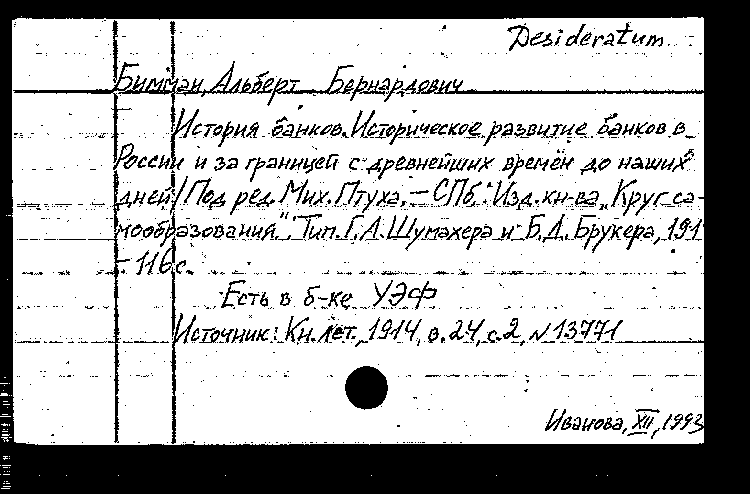 Desideratum
Бимман, Альберт Бернардович
История банков. Историческое развитие банков в
России и за границей с древнейших времён до наших
дней / Под ред. Мих. Птуха. – СПб.: Изд. кн-ва „Круг са-
мообразования“. Тип. Г.А. Шумахера и Б.Д. Брукера, 191
– 116 с.
Есть в б-ке УЭФ
Источник: Кн. лет., 1914, в. 24, с. 2, N 13771
Иванова, XII, 1993